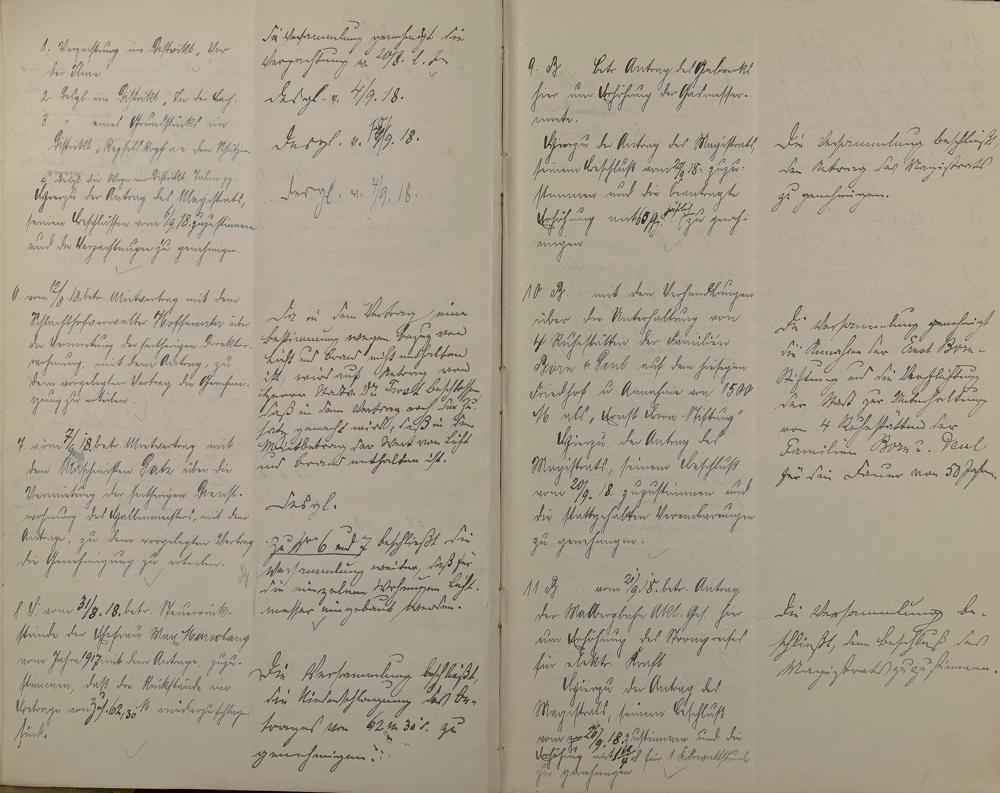 1. Verpachtung im Distrikt „Vor
der Ulme"
2. Desgl. im Distrikt „In der Bach.
3. " eines Grundstücks im
Distrikt
4. Desgl. die Wege im Distrikt
Hierzu der Antrag des Magistrats,
seinen Beschlüssen vom 6/9.18. zuzustimmen
und die Verpachtungen zu genehmigen.
6. vom 12/9.18. betr. Mietvertrag mit dem
Schlachthofverwalter über
die Vermietung der seitherigen Direktor-
wohnung, mit dem Antrag, zu
dem vorgelegten Vertrag die Genehmi-
gung zu erteilen.
7. vom 7/9.18. betr. Mietvertrag mit
dem Maschinisten über die
Vermietung der seitherigen Dienst-
wohnung des Hallenmeisters, mit dem
Antrage, zu dem vorgelegten Vertrag
die Genehmigung zu erteilen.
8. vom 31/8.18. betr. Steuerrück-
stände der Ehefrau Max
vom Jahre 1917 mit dem Antrage, zuzu-
stimmen, daß die Rückstände im
Betrage von 62,30 M niederzuschlagen
sind.
Die Versammlung genehmigt die
Verpachtung v. 20/8. l. Js.
Desgl. v. 4/9.18.
Desgl. v. /9.18.
Desgl. v. 4/9.18.
Da in dem Vertrag eine
Bestimmung wegen Bezug von
Licht und Brand nicht enthalten
ist, wird auf Antrag von
Herrn Stadtv. Dr. beschlossen
daß in dem Vertrag noch der Zu-
satz gemacht wird, daß in dem
Mietbetrag der Wert von Licht
und Brand enthalten ist.
Desgl.
Zu No 6 und 7 beschließt die
Versammlung weiter, daß für
die einzelnen Wohnungen Licht-
messer eingebaut werden.
Die Versammlung beschließt
die Niederschlagung des Be-
trages von 62 M 30 d. zu
genehmigen.
9. betr. Antrag des Gaswerks
hier um Erhöhung der Gasmesser-
miete.
Hierzu der Antrag des Magistrats,
seinem Beschluß vom 20/9.18. zuzu-
stimmen und die beantragte
Erhöhung mit jährlich zu geneh-
migen
Die Versammlung beschließt,
den Antrag des Magistrats
zu genehmigen.
10. mit den Verhandlungen
über die Unterhaltung von
4 Ruhestätten der Familien
Born u. Deul auf dem hiesigen
Friedhof u. Annahme von 1500
M als „Ernst Born Stiftung"
Hierzu der Antrag des
Magistrats, seinem Beschluß
vom 20/9.18. zuzustimmen und
die stattgehabten Vereinbarungen
zu genehmigen.
Die Versammlung genehmigt
die Annahme der Ernst Born-
Stiftung und die Verpflichtung
der Stadt zur Unterhaltung
von 4 Ruhestätten der
Familien Born u. Deul
für die Dauer von 50 Jahren.
11. vom 2/9.18. betr. Antrag
der Malbergbahn Akt. Ges. hier
um Erhöhung des Strompreises
für elektr. Kraft
Hierzu der Antrag des
Magistrats, seinem Beschluß
vom 20/9.18. zuzustimmen und die
Erhöhung mit für 1 Kilowattstunde
zu genehmigen
Die Versammlung be-
schließt, dem Beschluß des
Magistrats zuzustimmen.